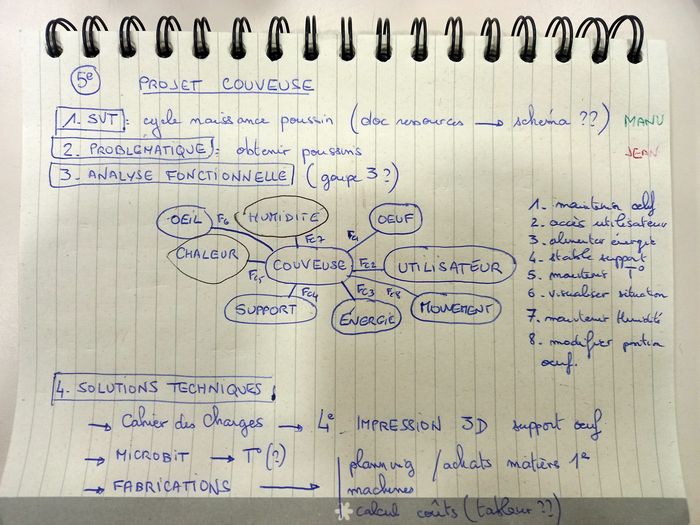 5e PROJET COUVEUSE
1. SVT : cycle naissance poussin (doc ressources → schéma ??) MANU
2. PROBLÉMATIQUE : obtenir poussins JEAN
3. ANALYSE FONCTIONNELLE (groupe 3 ?)
OEIL
Fc6
HUMIDITÉ
Fc7
OEUF
Fc1
CHALEUR
Fc5
COUVEUSE
Fc2
UTILISATEUR
SUPPORT
Fc4
ÉNERGIE
Fc3
MOUVEMENT
Fc8
1. maintenir oeuf
2. accès utilisateur
3. alimenter énergie
4. stable support
5. maintenir T°
6. visualiser situation
7. maintenir Humidité
8. modifier position
oeuf.
4. SOLUTIONS TECHNIQUES
→ Cahier des Charges → 4e IMPRESSION 3D support oeuf
→ MICROBIT → T° (?)
→ FABRICATIONS →
planning / achats matière 1e
machines
calcul coûts (tableur ??)